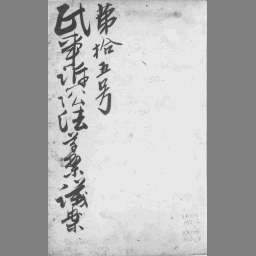 第拾五号
民事訴訟法草案議案